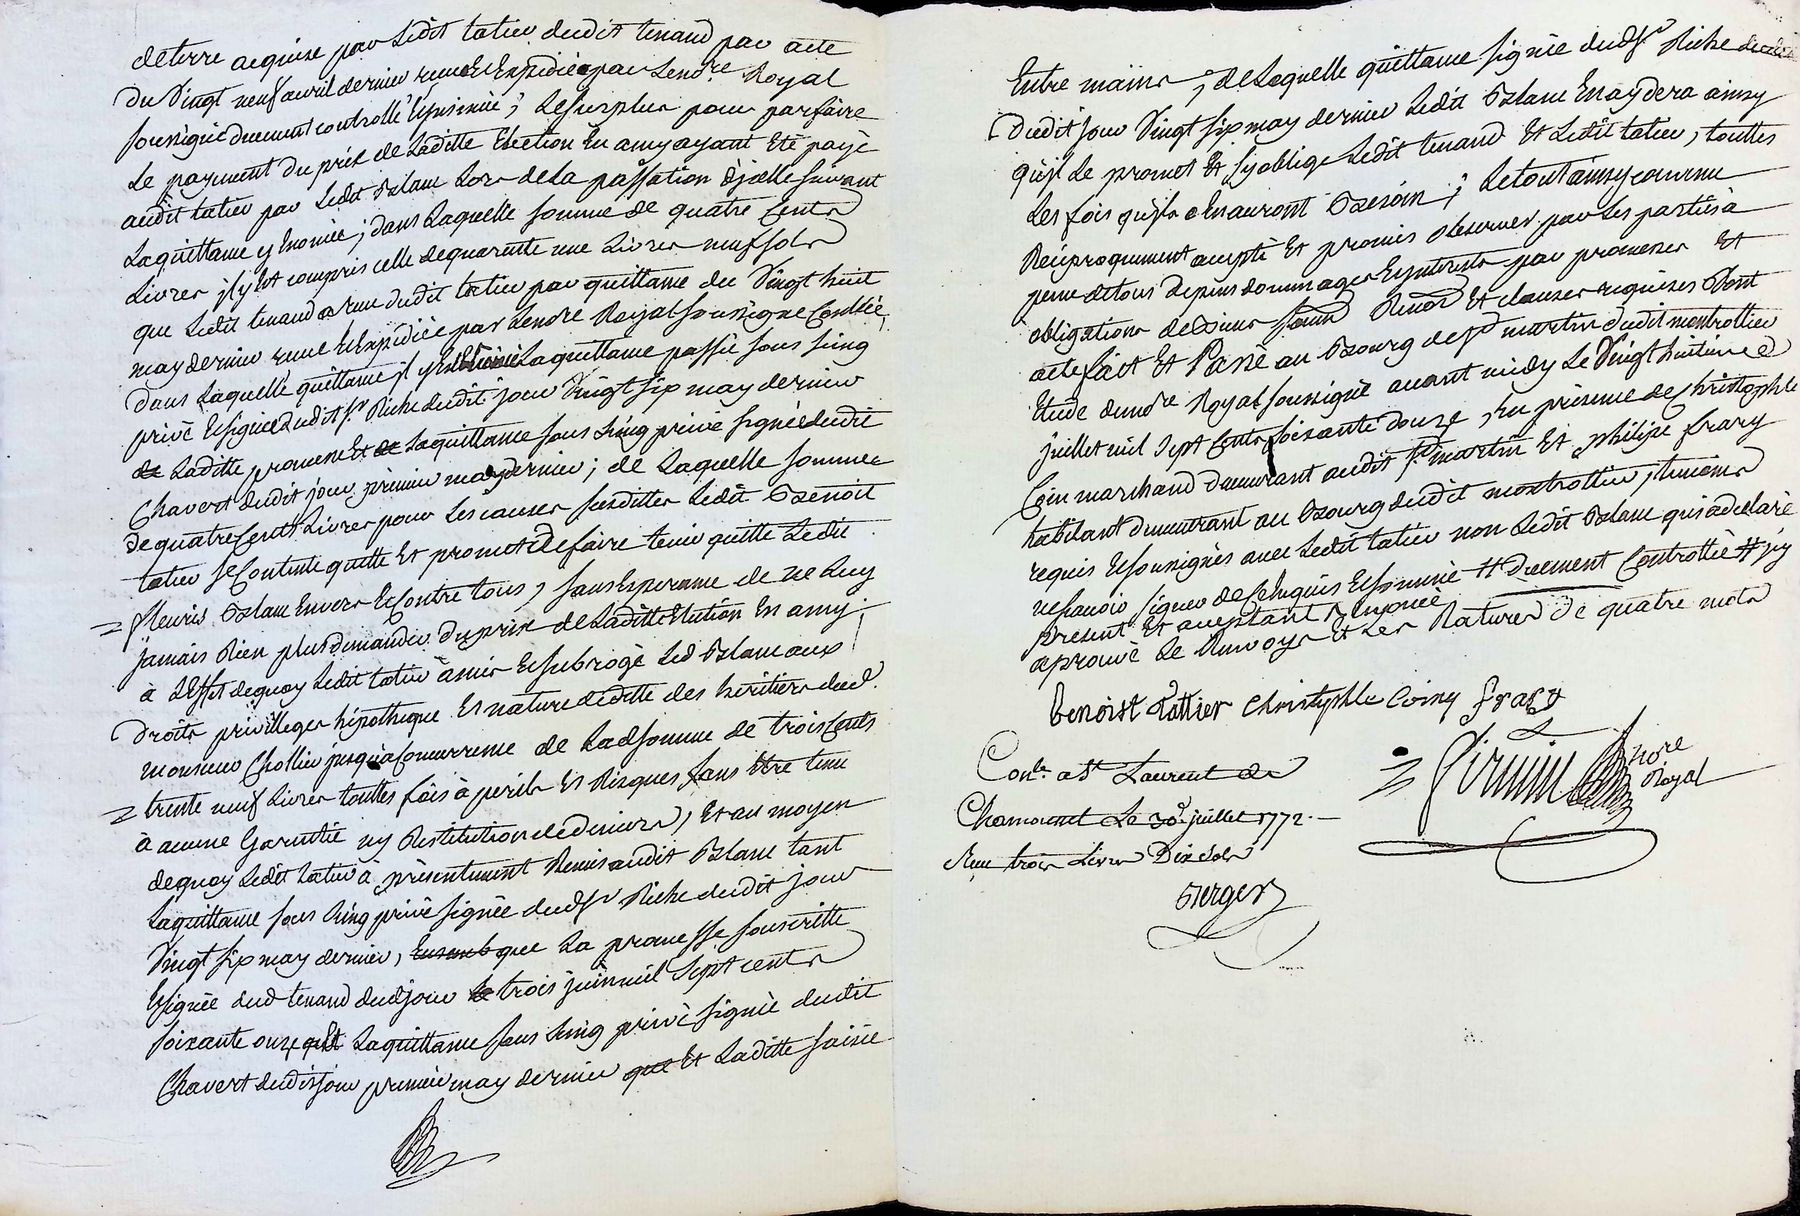 deterre acquise par Ledit tatier dudit tenand par acte
du Vingt neuf avril dernier reçu Et Expédiée par Lenore Royal
soussigné duement controllé Et insinué ; Lesurplus pour parfaire
Le payement du prix de Laditte Election En amy ayant Eté payé
audit tatier par Ledit Blanc Lors de La passation d'jcelle suivant
Laquittance y Enoncée ; dans Laquelle somme de quatre Cents
Livres jl y Est compris celle dequarente une Livres neuf sols
que Ledit tenand a reçu dudit tatier par quittance du Vingt huit
may dernier reçue Et Expédiée par Lenore Royal soussigné Contllée,
dans Laquelle quittance jl y Est Laquittance passée sous seing
privé Et signée dudit sr Riche dudit jour Vingt six may dernier
de Laditte promesse Et de Laquittance sous seing privé signée dudit
Chavert dudit jour premier may dernier ; de Laquelle somme
de quatre Cents Livres pour Les causes susdittes Ledit Benoit
tatier se Contente quitte Et promet de faire tenir quitte Ledit
fleury Blanc Envers Et Contre tous, sans Esperance de ne Luy
jamais Rien plus demander du prix de Laditte Election En amy ;
à L'Effet dequoy Ledit tatier à mis Et subrogé Led Blanc aux
Droits privilleges hipotheque Et nature de dette des héritiers dud.
monsieur Chollier jusqu'a Concurrence de Lad somme de trois Cents
trente neuf Livres touttes fois à perils Et Risques sans Etre tenu
à aucune Garantie ny Restitution de deniers, Et au moyen
dequoy Ledit tatier à présentement Remis audit Blanc tant
Laquittance sous seing privé signée dud sr Riche dudit jour
Vingt six may dernier, Ensemb que La promesse souscritte
Et signée dud tenand dud jour le trois juin mil sept cents
soixante onze que Et Laquittance sous seing privé signée dudit
Chavert dudit jour premier may dernier que Et Laditte saisie
Entre mains, de Laquelle quittance signée dud sr Riche
Dudit jour Vingt six may dernier Ledit Blanc En aydera ainsy
qu'jl Le promet Et s'y oblige Ledit tenand Et Ledit tatier, touttes
Les fois qu'jls En auront Besoin ; Letout ainsy convenu
Réciproquement accepté Et promis observer par Les parties à
peine de tous depens dommages Et interests par promesses Et
obligations de Renon Et clauses requises Dont
acte fait Et Passé au Bourg de St martin dudit montrottier
Etude dunore Royal soussigné avant midy Le Vingt huitieme
juillet mil Sept Cents soixante douze, En présence de Christophle
Coin marchand demeurant audit St martin Et philipe frary
habitant demeurant au Bourg dudit montrottier, temoins
requis Et soussignés avec Ledit tatier non Ledit Blanc qui a declaré
ne savoir signer de ce Enquis Et sommé # Duement Controllée # jcy
present Et aceptant Et
aprouvé Le Renvoys Et Les Ratures de quatre mots
Benoist Tattier Christophle Coing frary
Conlé a St Laurent de
Chamousset Le 30 juillet 1772.
Reçu trois Livres Dix sols
Berger
nore
Royal